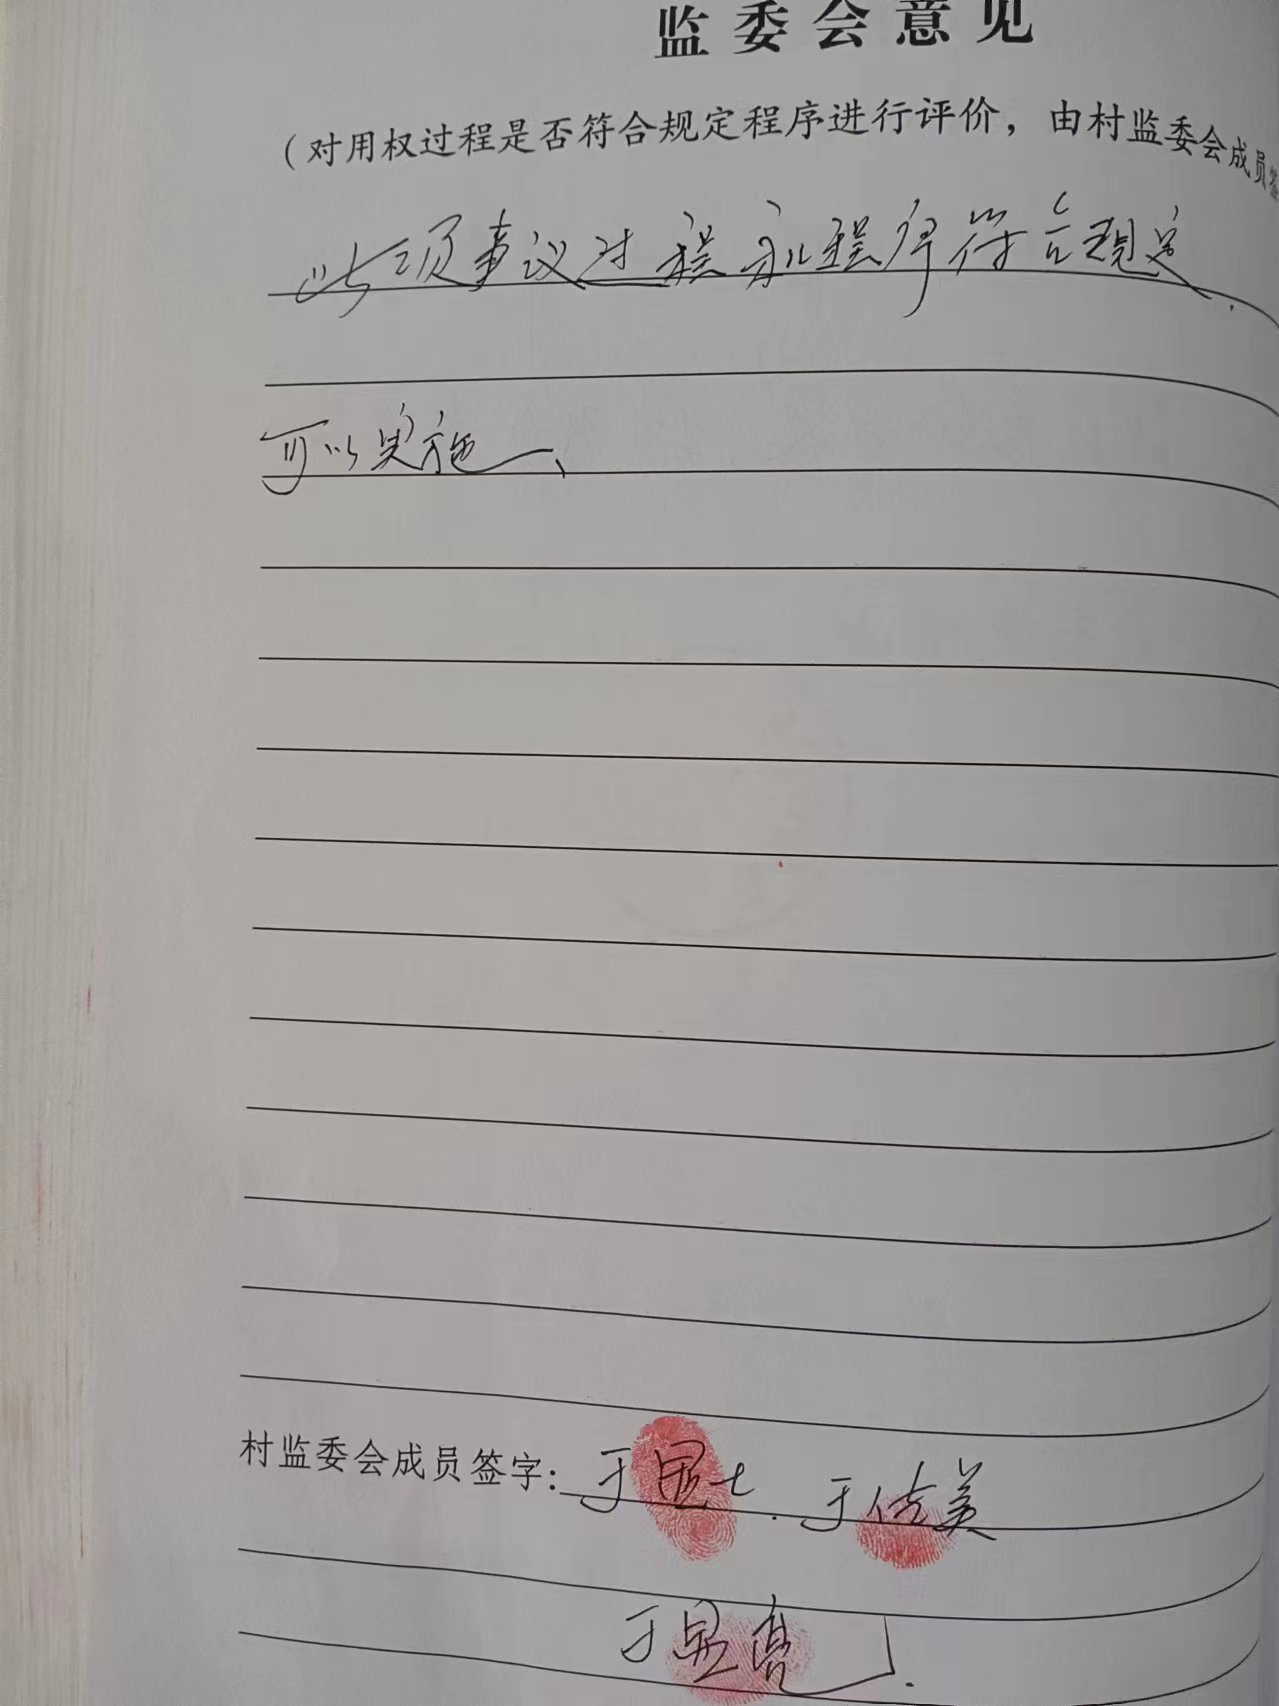 监委会意见
（对用权过程是否符合规定程序进行评价，由村监委会成员签
此项事议过程和程序符合规定.
可以实施、
村监委会成员签字: 于显士. 于佐美
于显亮.